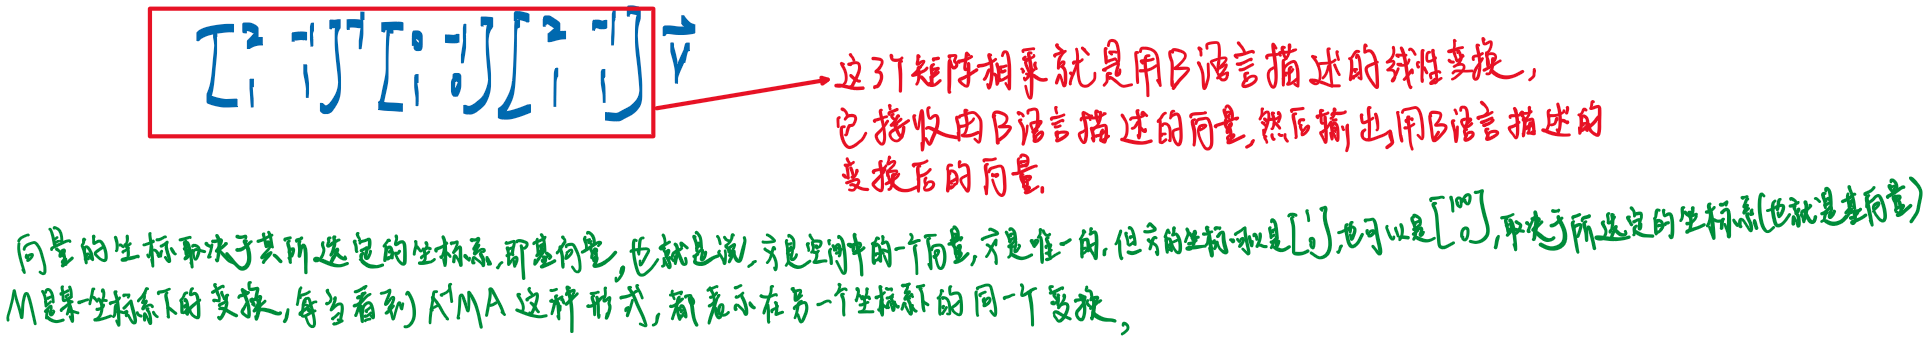 [2 -1; 1 1]⁻¹ [0 -1; 1 0] [2 -1; 1 1] v⃗
这3个矩阵相乘就是用B语言描述的线性变换,
它接收由B语言描述的向量,然后输出用B语言描述的
变换后的向量.
向量的坐标取决于其所选定的坐标系,即基向量,也就是说,v⃗是空间中的一个向量,v⃗是唯一的,但v⃗的坐标可以是[1; 0],也可以是[100; 0],取决于所选定的坐标系(也就是基向量)
M是某一坐标系下的变换,每当看到A⁻¹MA这种形式,都表示在另一个坐标系下的同一个变换,